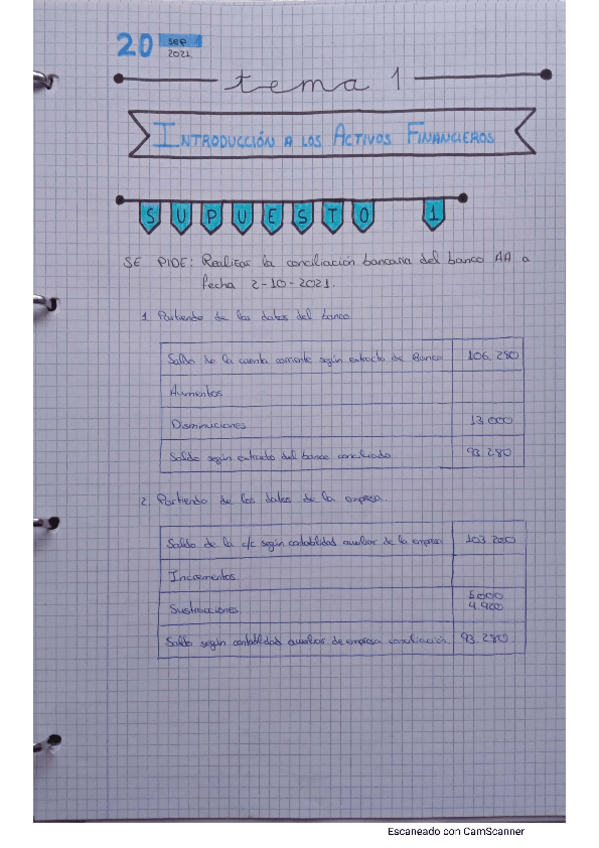 20 sep
2021.
tema 1
INTRODUCCIÓN A LOS ACTIVOS FINANCIEROS
SUPUESTO 1
SE PIDE: Realizar la conciliación bancaria del banco AA a
fecha 2-10-2021.
1. Partiendo de los datos del banco
Saldo de la cuenta corriente según extracto de Banco 106.280
Aumentos
Disminuciones 13.000
Saldo según extracto del banco conciliado 93.280
2. Partiendo de los datos de la empresa.
Saldo de la c/c según contabilidad auxiliar de la empresa
Incrementos
Sustracciones
Saldo según contabilidad auxiliar de empresa conciliación. 93.280.
Escaneado con CamScanner